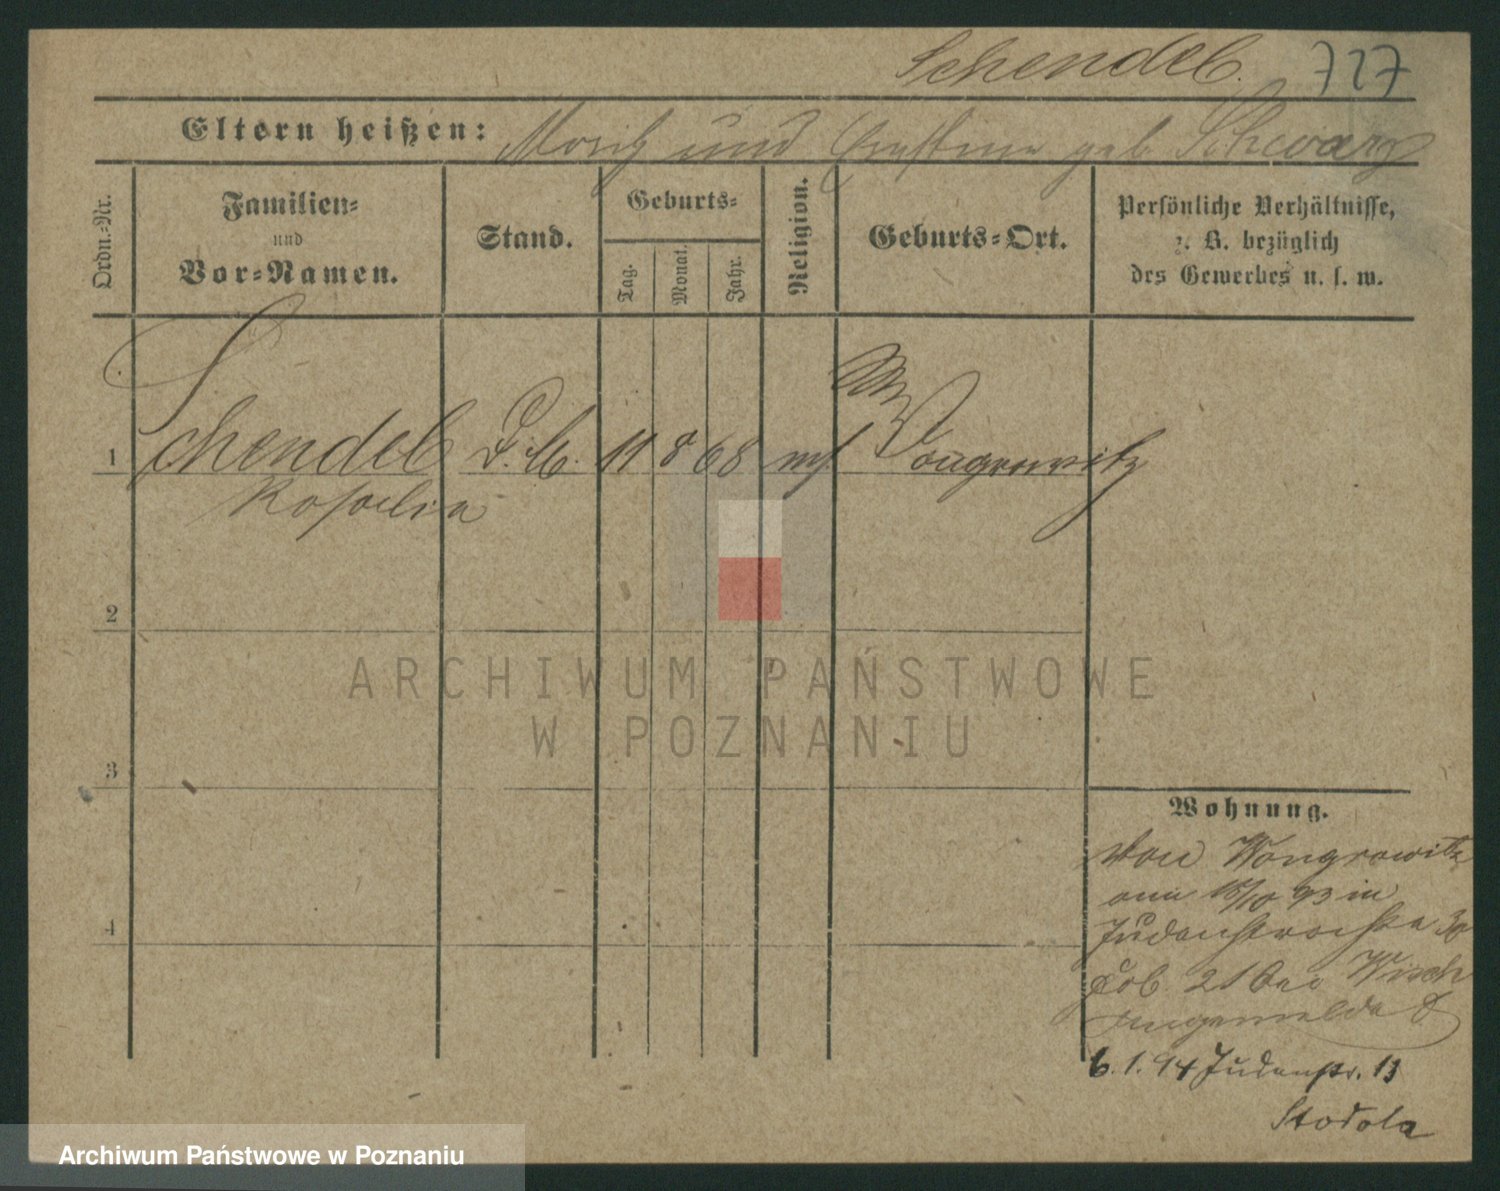 Schendel. 727
Eltern heißen: Moritz und geb. Schwarz
Ordn.-Nr.
Familien-
und
Vor-Namen.
Stand.
Geburts-
Tag.
Monat.
Jahr.
Religion.
Geburts-Ort.
Persönliche Verhältnisse,
z. B. bezüglich
des Gewerbes u. s. w.
1 Schendel 11 8 68 Wongrowitz
Rosalia
2
3
4
Wohnung.
Von Wongrowitz
am 15/10 93 in
Judenstrasse 30
21 bei
angemeldet
6.1.94 Judenstr. 13
Stodola
ARCHIWUM PAŃSTWOWE
W POZNANIU
Archiwum Państwowe w Poznaniu